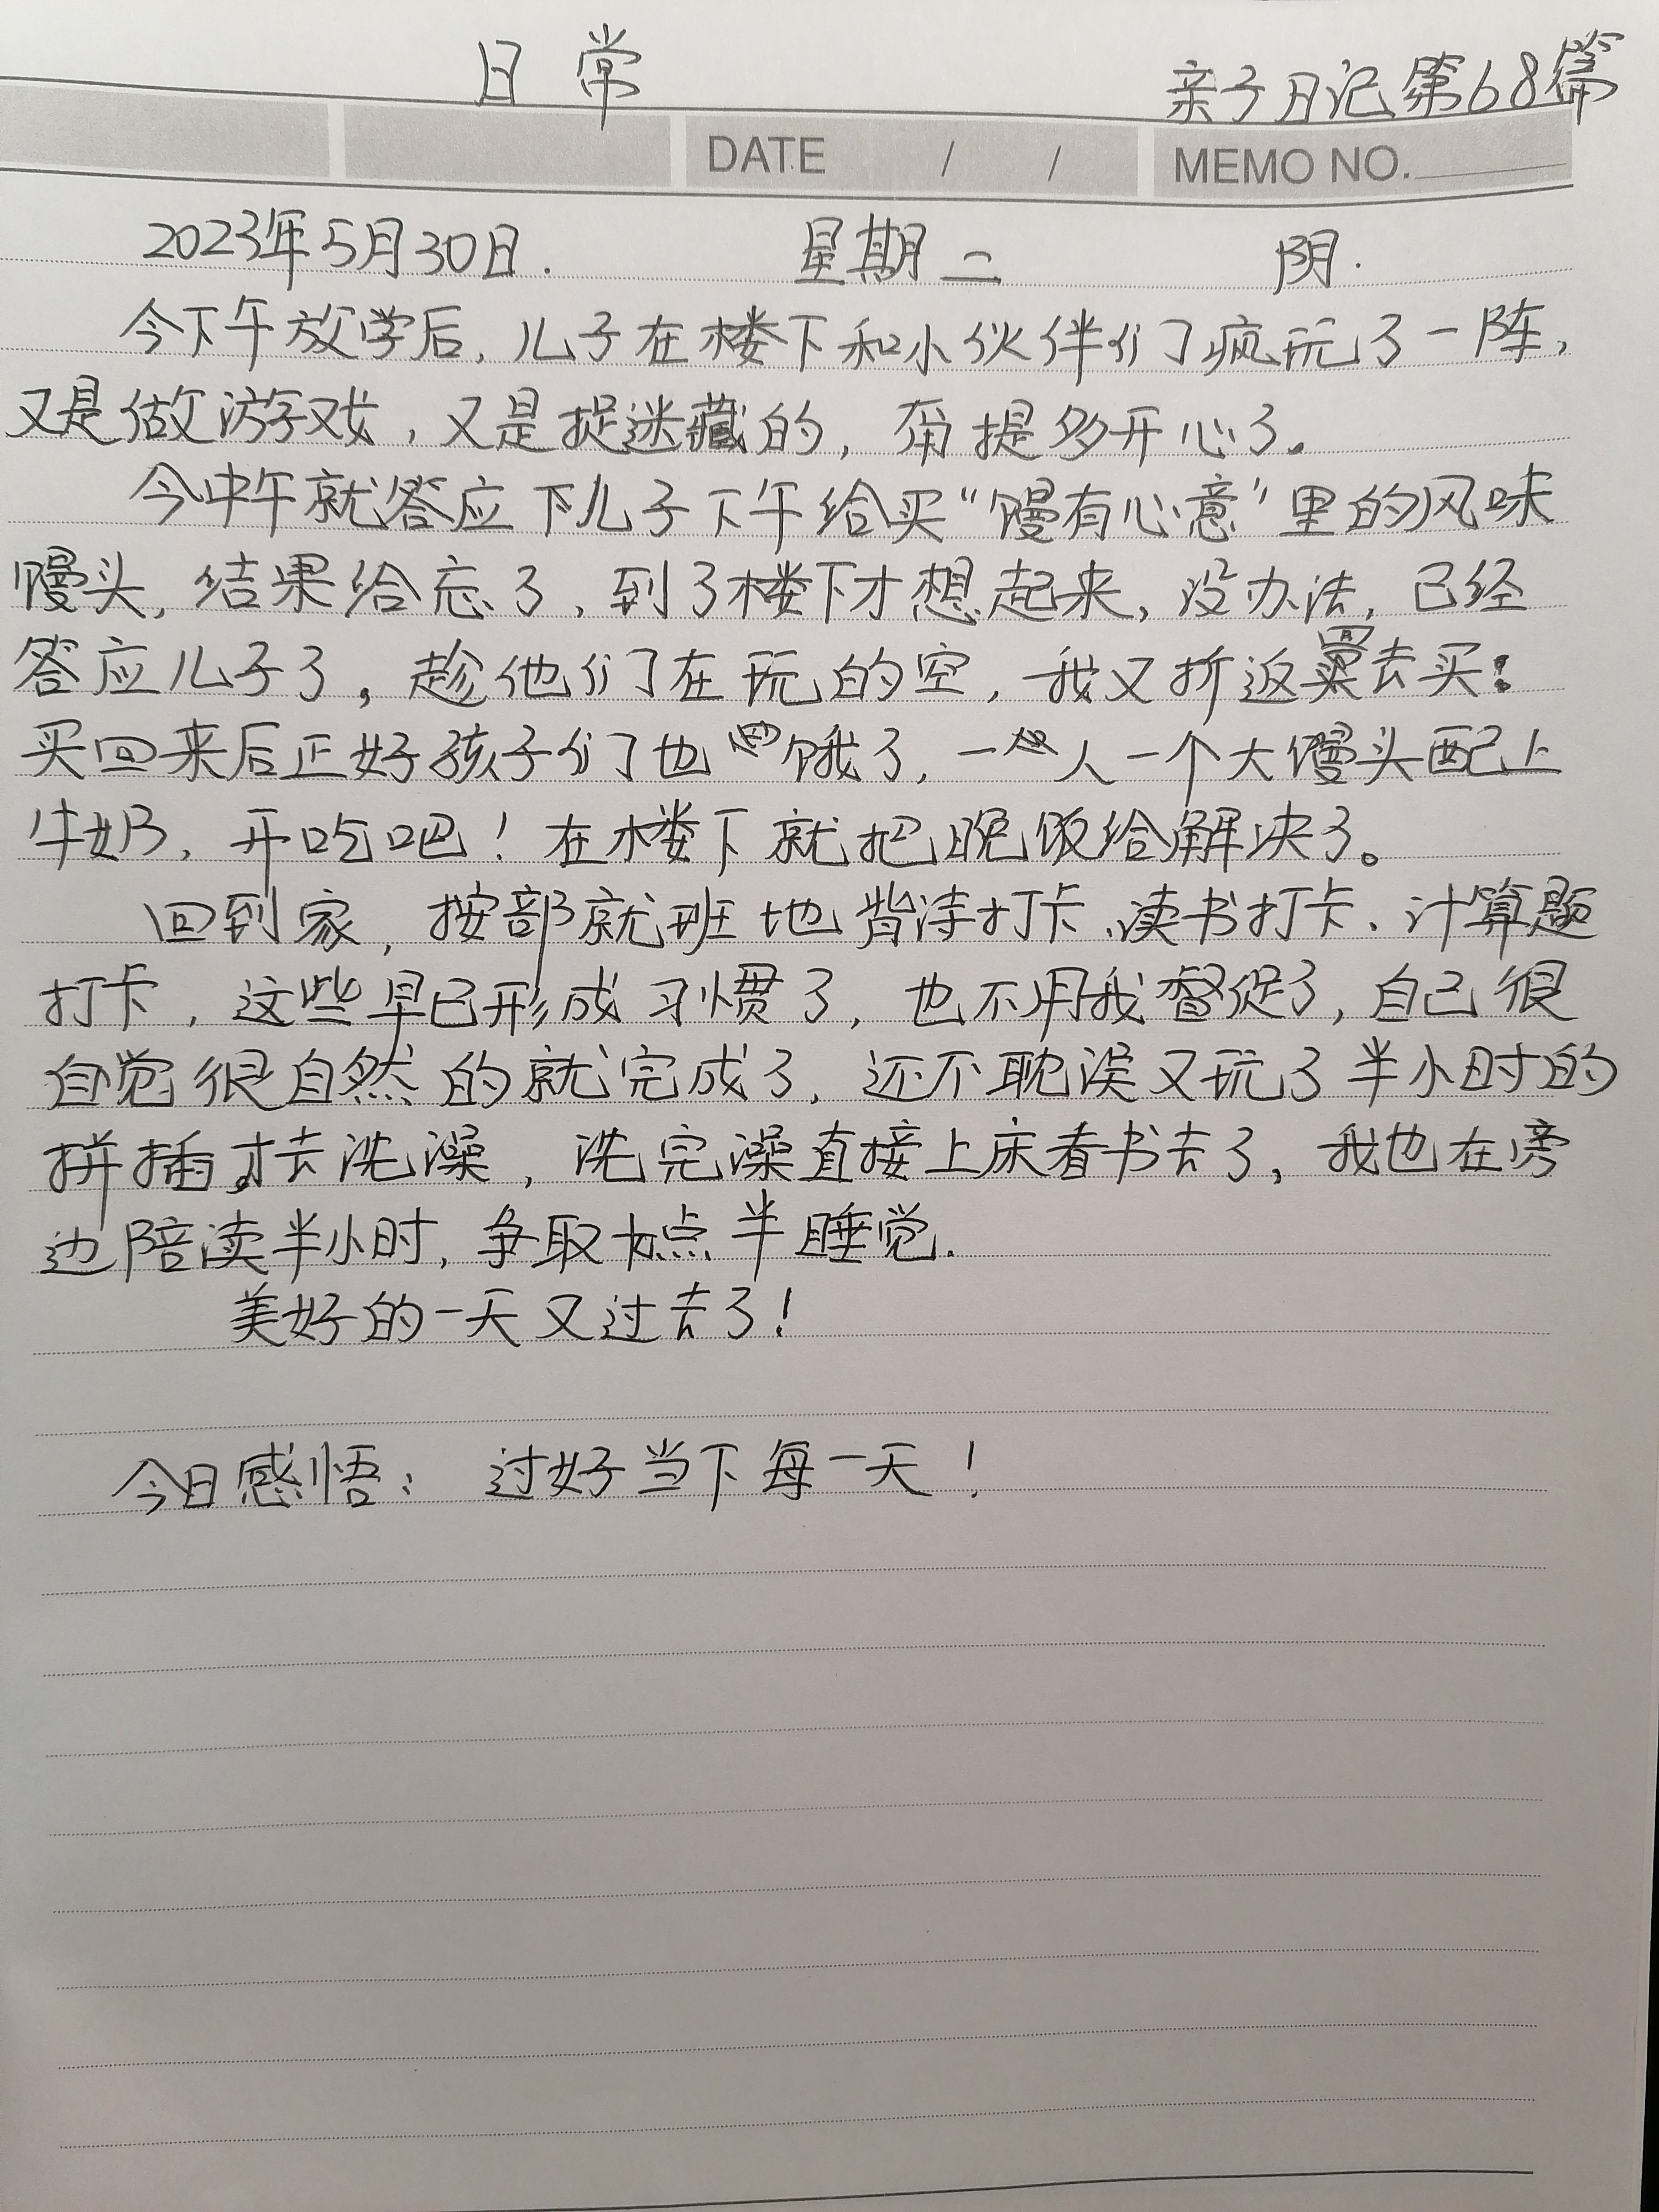 日常
亲子日记第68篇
DATE / /
MEMO NO.
2023年5月30日. 星期二 阴.
今下午放学后,儿子在楼下和小伙伴们疯玩了一阵,
又是做游戏,又是捉迷藏的,甭提多开心了。
今中午就答应下儿子下午给买“馒有心意”里的风味
馒头,结果给忘了,到了楼下才想起来,没办法,已经
答应儿子了,趁他们在玩的空,我又折返去买!
买回来后正好孩子们也饿了,一人一个大馒头配上
牛奶,开吃吧!在楼下就把晚饭给解决了。
回到家,按部就班地背诗打卡、读书打卡、计算题
打卡,这些早已形成习惯了,也不用我督促了,自己很
自觉很自然的就完成了,还不耽误又玩了半小时的
拼插,才去洗澡,洗完澡直接上床看书去了,我也在旁
边陪读半小时,争取九点半睡觉.
美好的一天又过去了!
今日感悟:过好当下每一天!